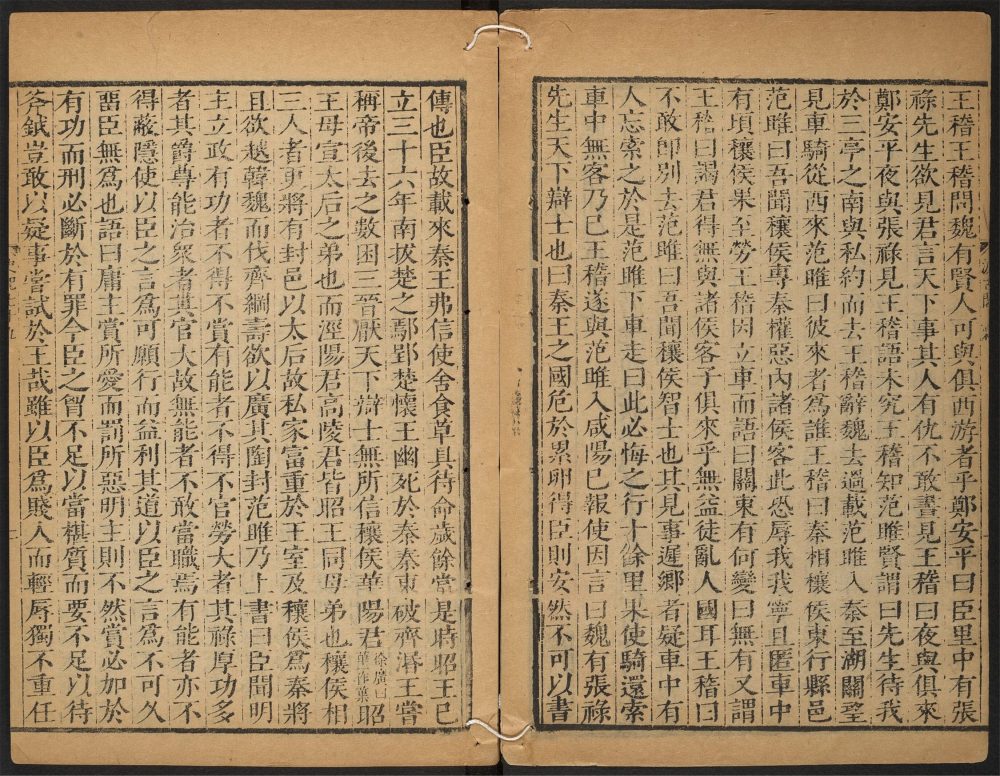 王稽王稽問魏有賢人可與俱西游者乎鄭安平曰臣里中有張
祿先生欲見君言天下事其人有仇不敢晝見王稽曰夜與俱來
鄭安平夜與張祿見王稽語未究王稽知范雎賢謂曰先生待我
於三亭之南與私約而去王稽辭魏去過載范雎入秦至湖關望
見車騎從西來范雎曰彼來者為誰王稽曰秦相穰侯東行縣邑
范雎曰吾聞穰侯專秦權惡內諸侯客此恐辱我我寧且匿車中
有頃穰侯果至勞王稽因立車而語曰關東有何變曰無有又謂
王稽曰謁君得無與諸侯客子俱來乎無益徒亂人國耳王稽曰
不敢卽別去范雎曰吾聞穰侯智士也其見事遲鄉者疑車中有
人忘索之於是范雎下車走曰此必悔之行十餘里果使騎還索
車中無客乃已王稽遂與范雎入咸陽已報使因言曰魏有張祿
先生天下辯士也曰秦王之國危於累卵得臣則安然不可以書
傳也臣故載來秦王弗信使舍食草具待命歲餘當是時昭王已
立三十六年南拔楚之鄢郢楚懷王幽死於秦秦東破齊湣王嘗
稱帝後去之數困三晉厭天下辯士無所信穰侯華陽君徐廣曰華作葉昭
王母宣太后之弟也而涇陽君高陵君皆昭王同母弟也穰侯相
三人者更將有封邑以太后故私家富重於王室及穰侯為秦將
且欲越韓魏而伐齊綱壽欲以廣其陶封范雎乃上書曰臣聞明
主立政有功者不得不賞有能者不得不官勞大者其祿厚功多
者其爵尊能治眾者其官大故無能者不敢當職焉有能者亦不
得蔽隱使以臣之言為可願行而益利其道以臣之言為不可久
畱臣無為也語曰庸主賞所愛而罰所惡明主則不然賞必加於
有功而刑必斷於有罪今臣之胷不足以當椹質而要不足以待
斧鉞豈敢以疑事嘗試於王哉雖以臣為賤人而輕辱獨不重任